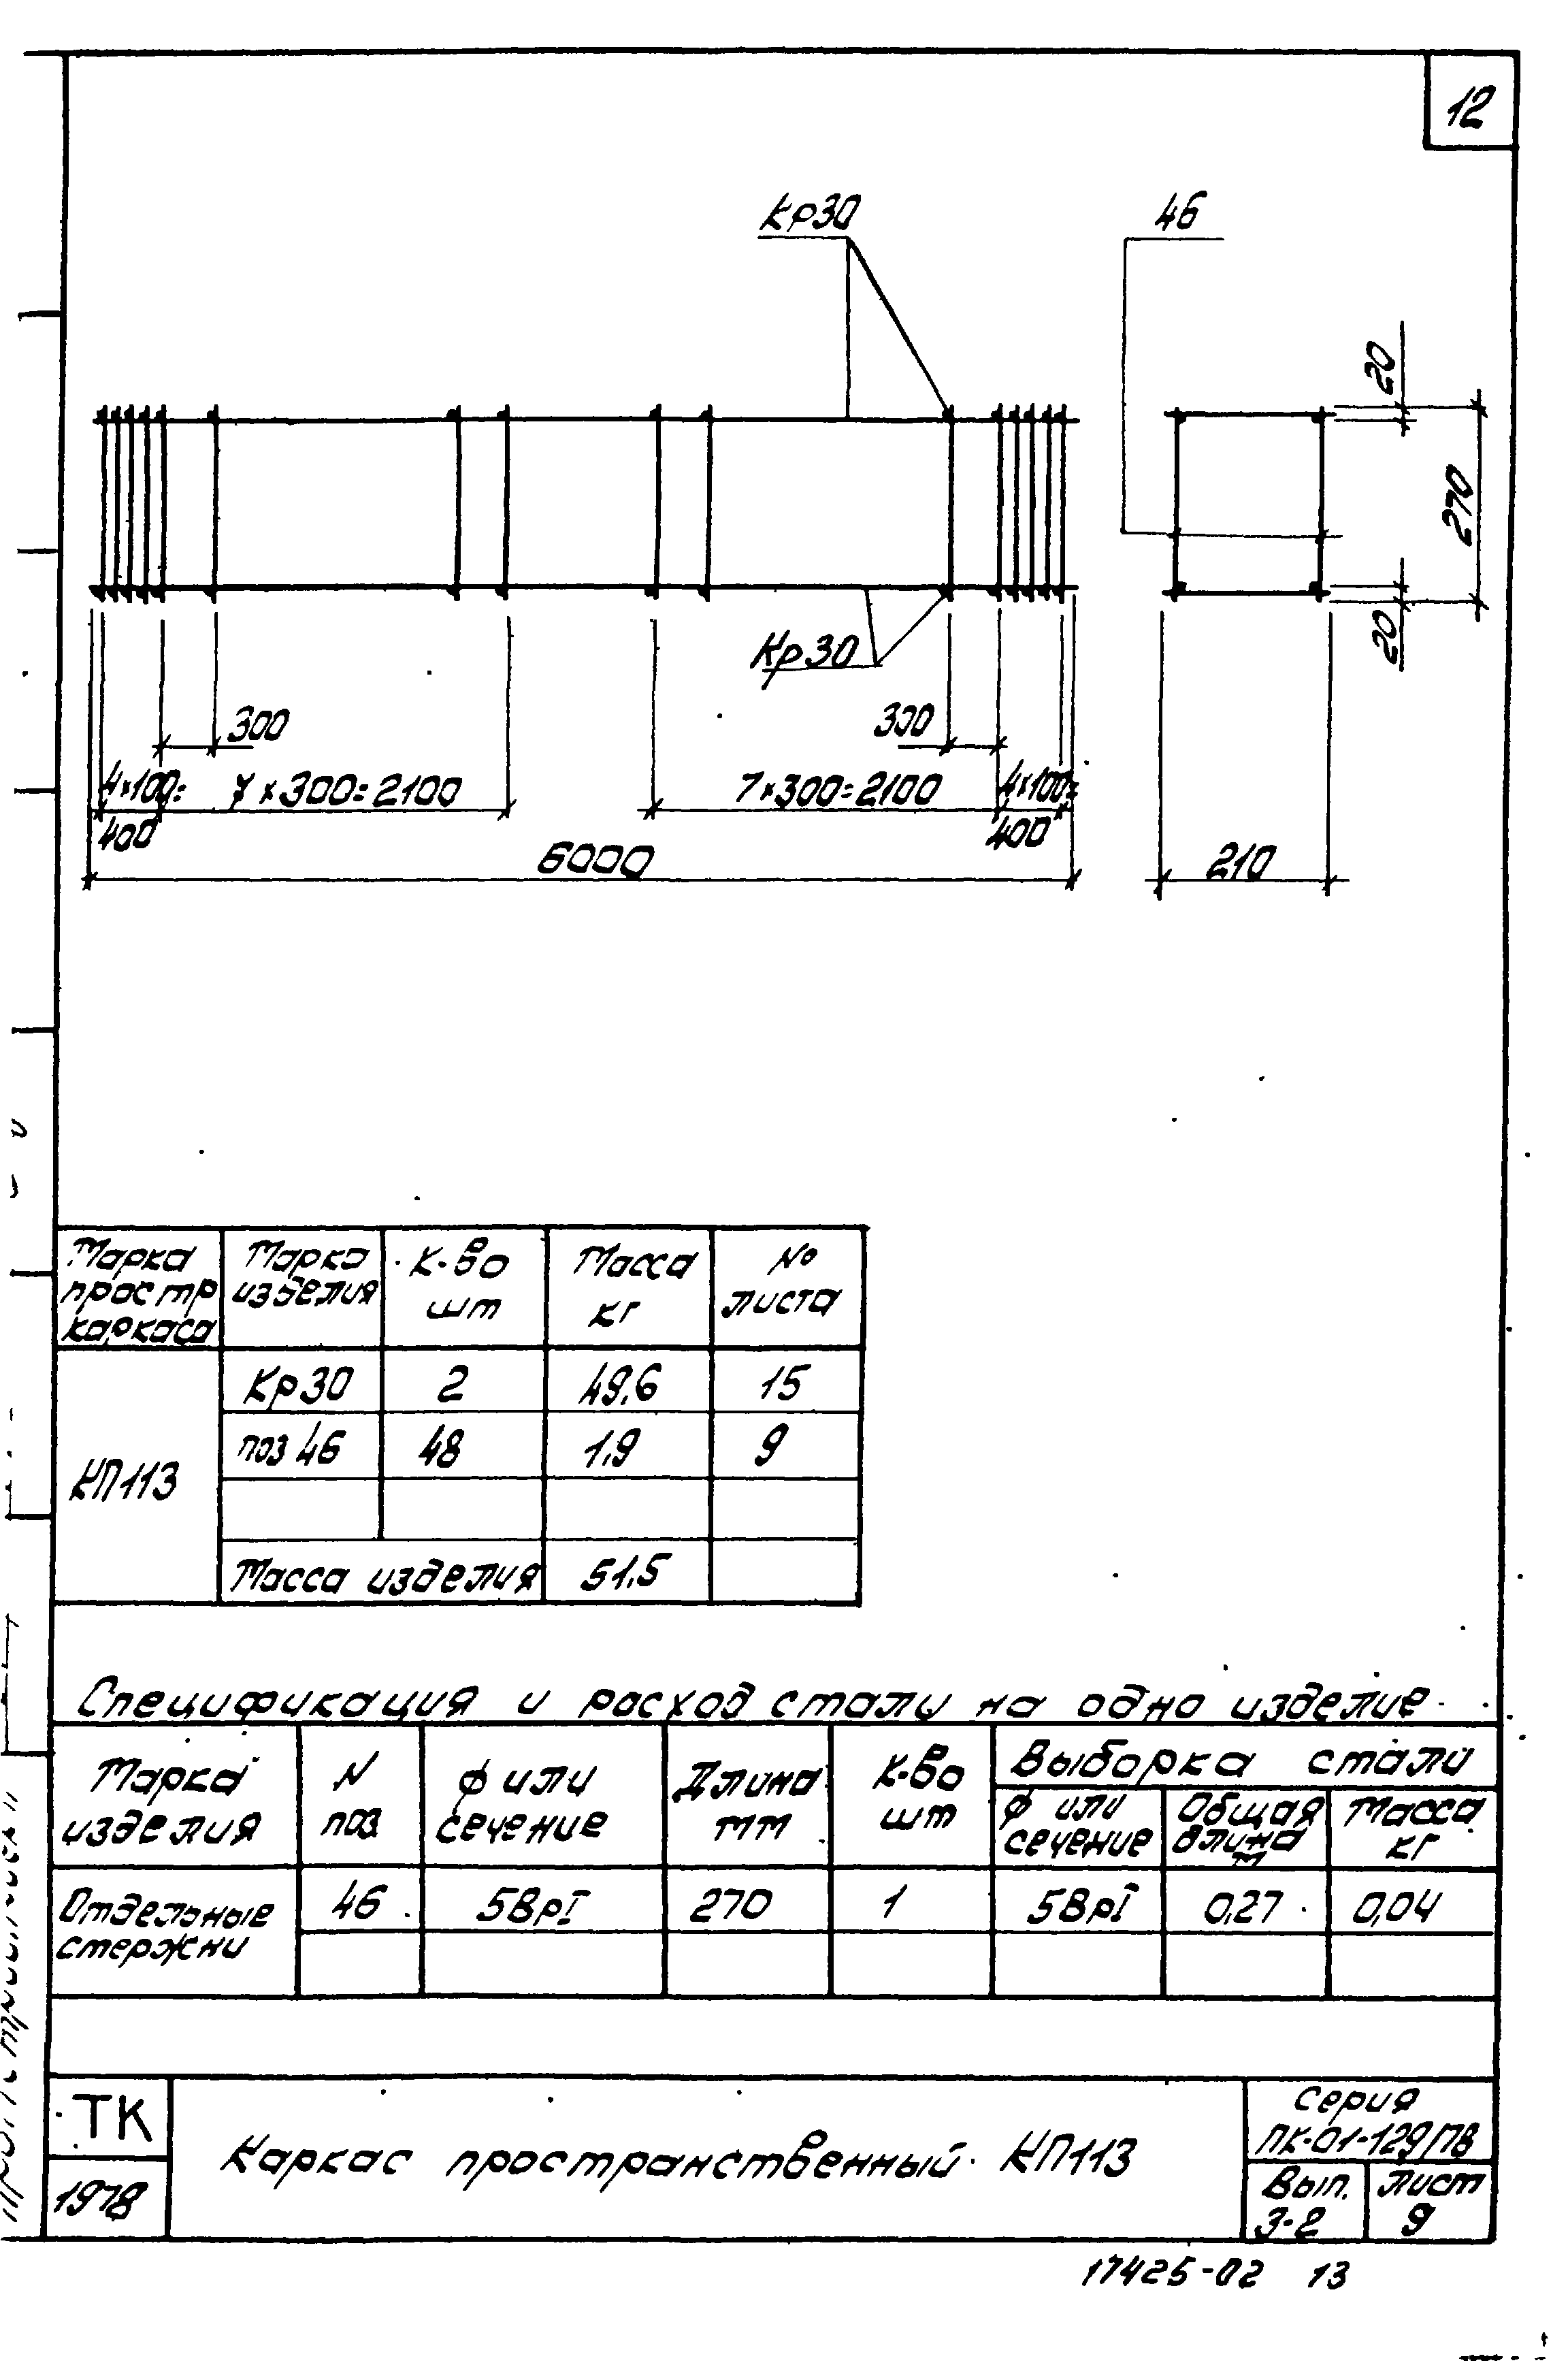 12
Кр30
46
20
270
20
Кр30
300
300
4×100=
7×300=2100
7×300=2100
4×100=
400
400
6000
210
Марка простр каркаса
Марка изделия
К-во шт
Масса кг
№ листа
КП113
Кр30 2 49.6 15
поз 46 48 1.9 9
Масса изделия 51.5
Спецификация и расход стали на одно изделие
Марка изделия
N поз
ф или сечение
Длина мм
К-во шт
Выборка стали
ф или сечение
Общая длина м
Масса кг
Отдельные стержни
46 5ВрI 270 1 5ВрI 0,27 0,04
ТК
1978
Каркас пространственный КП113
Серия
ПК-01-129/78
Вып. 3-2
Лист 9
17425-02 13